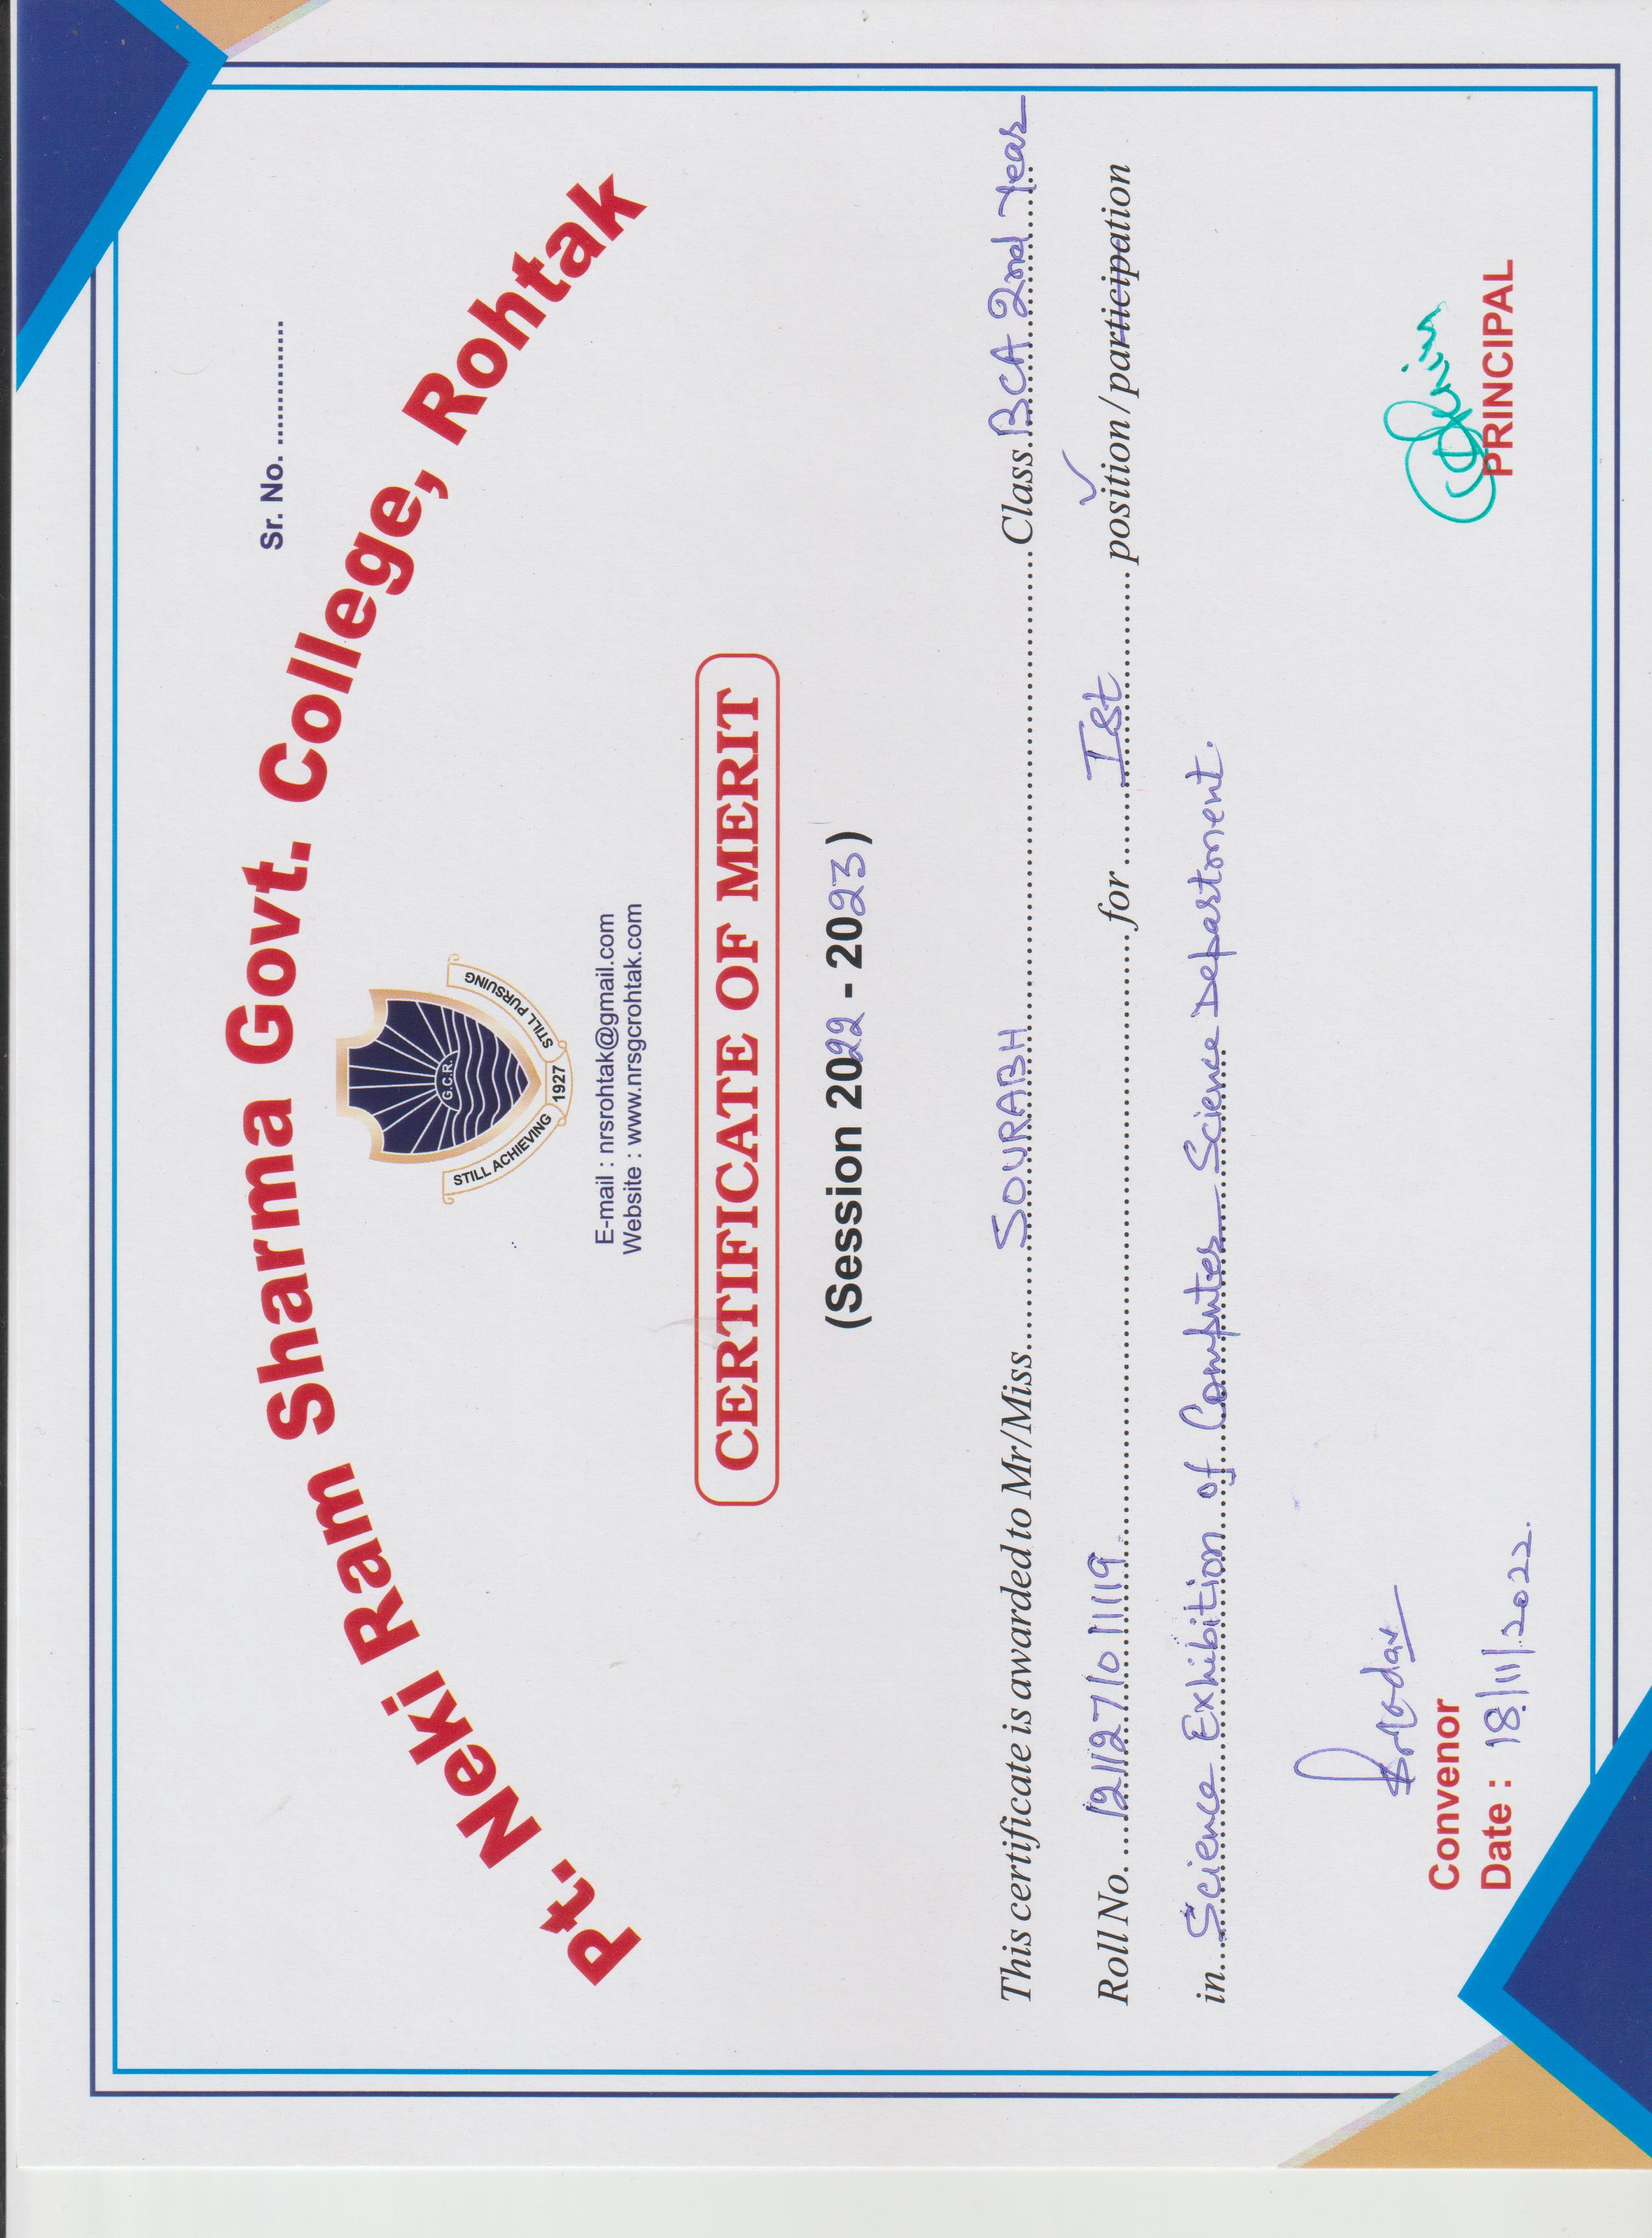 Pt. Neki Ram Sharma Govt. College, Rohtak
Sr. No. ...............
G.C.R.
STILL ACHIEVING 1927 STILL PURSUING
E-mail : nrsrohtak@gmail.com
Website : www.nrsgcrohtak.com
CERTIFICATE OF MERIT
(Session 2022 - 2023)
This certificate is awarded to Mr/Miss SOURABH Class BCA 2nd Year
Roll No. for Ist position / participation
in Science Exhibition of Computer Science Department.
Convenor
Date : 18/11/2022.
PRINCIPAL